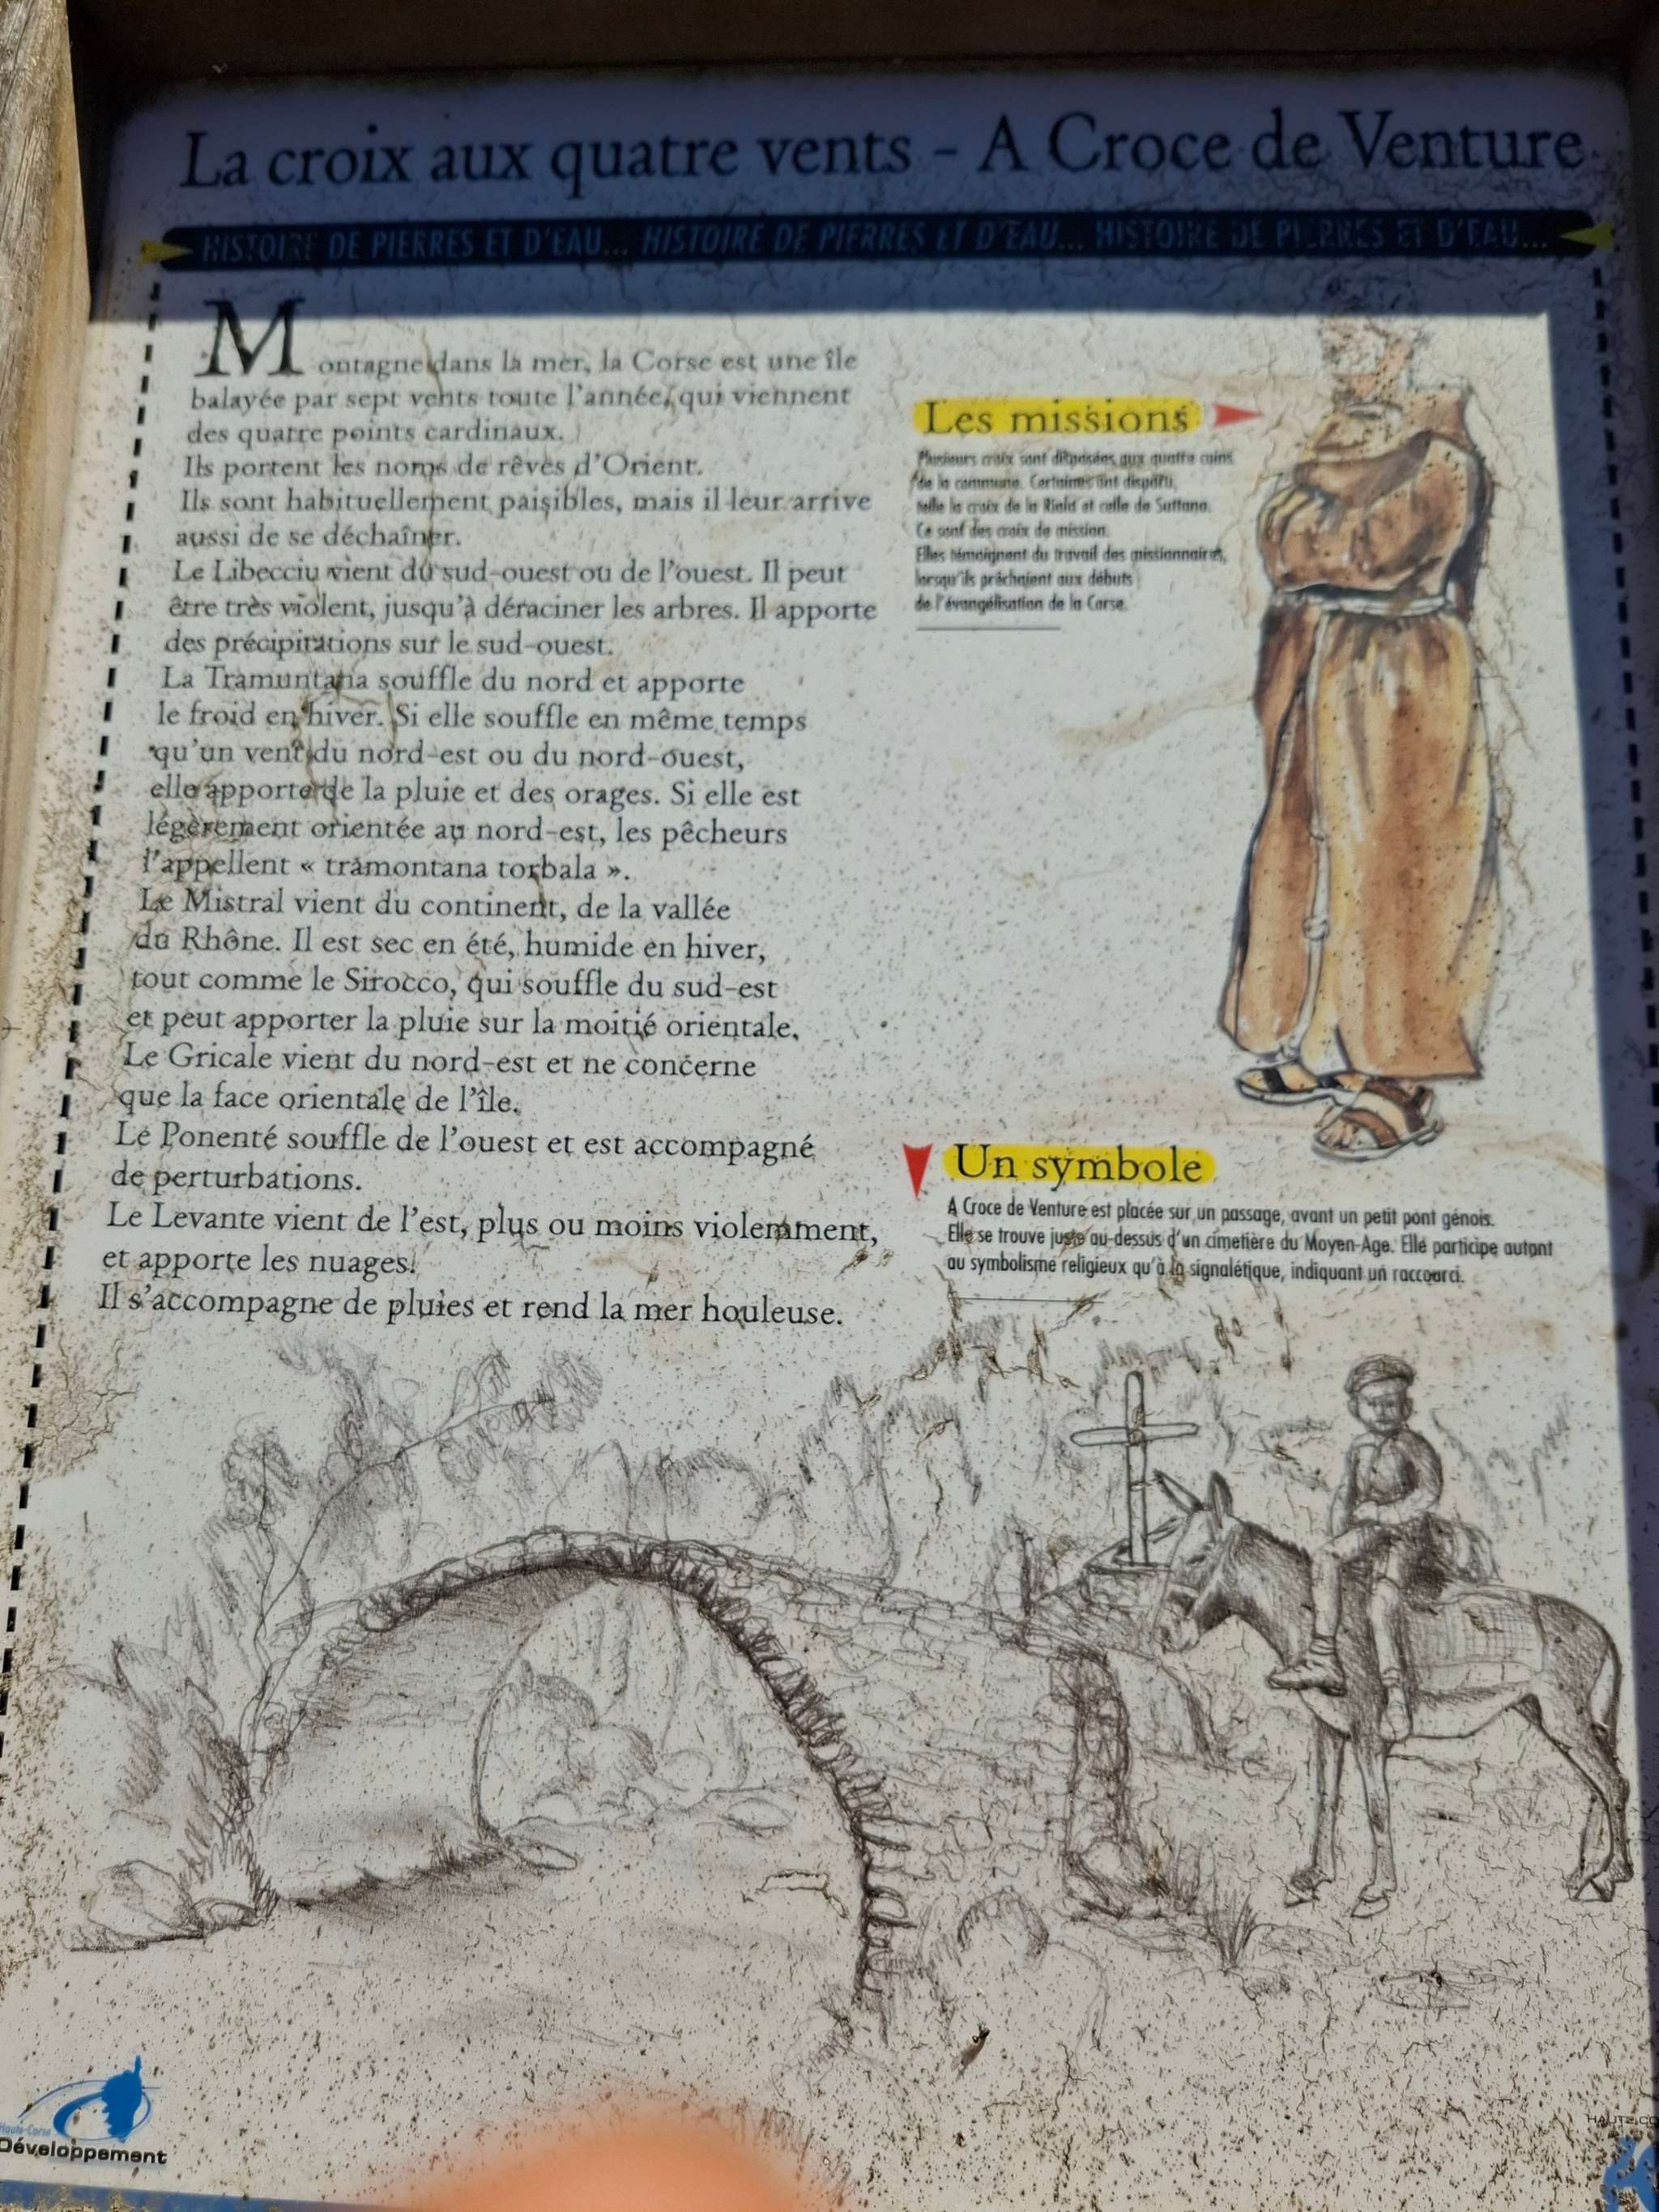 La croix aux quatre vents - A Croce de Venture
HISTOIRE DE PIERRES ET D'EAU... HISTOIRE DE PIERRES ET D'EAU... HISTOIRE DE PIERRES ET D'EAU...
Montagne dans la mer, la Corse est une île
balayée par sept vents toute l'année, qui viennent
des quatre points cardinaux.
Ils portent les noms de rêves d'Orient.
Ils sont habituellement paisibles, mais il leur arrive
aussi de se déchaîner.
Le Libecciu vient du sud-ouest ou de l'ouest. Il peut
être très violent, jusqu'à déraciner les arbres. Il apporte
des précipitations sur le sud-ouest.
La Tramuntana souffle du nord et apporte
le froid en hiver. Si elle souffle en même temps
qu'un vent du nord-est ou du nord-ouest,
elle apporte de la pluie et des orages. Si elle est
légèrement orientée au nord-est, les pêcheurs
l'appellent « tramontana torbala ».
Le Mistral vient du continent, de la vallée
du Rhône. Il est sec en été, humide en hiver,
tout comme le Sirocco, qui souffle du sud-est
et peut apporter la pluie sur la moitié orientale.
Le Gricale vient du nord-est et ne concerne
que la face orientale de l'île.
Le Ponenté souffle de l'ouest et est accompagné
de perturbations.
Le Levante vient de l'est, plus ou moins violemment,
et apporte les nuages.
Il s'accompagne de pluies et rend la mer houleuse.
Les missions
Plusieurs croix sont disposées aux quatre coins
de la commune. Certaines ont disparu,
telle la croix de la et celle de Suttana.
Ce sont des croix de mission.
Elles témoignent du travail des missionnaires,
lorsqu'ils prêchaient aux débuts
de l'évangélisation de la Corse.
Un symbole
A Croce de Venture est placée sur un passage, avant un petit pont génois.
Elle se trouve juste au-dessus d'un cimetière du Moyen-Age. Elle participe autant
au symbolisme religieux qu'à la signalétique, indiquant un raccourci.
Haute-Corse
Développement
HAUTE-CO